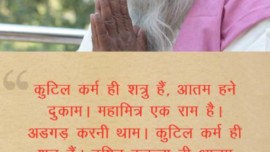 “
कुटिल कर्म ही शत्रु हैं, आतम हने
दुकाम। महामित्र एक राम है।
अड़गड़ करनी थाम। कुटिल कर्म ही